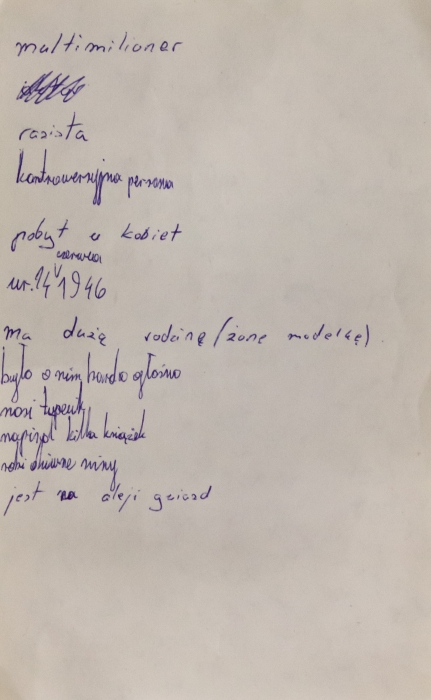 multimilioner
rasista
kontrowersyjna persona
pobyt u kobiet
czerwca
ur. 14 1946
ma dużą rodzinę (żonę modelkę).
było o nim bardzo głośno
nosi tupecik
napisał kilka książek
robi dziwne miny
jest na aleji gwiazd